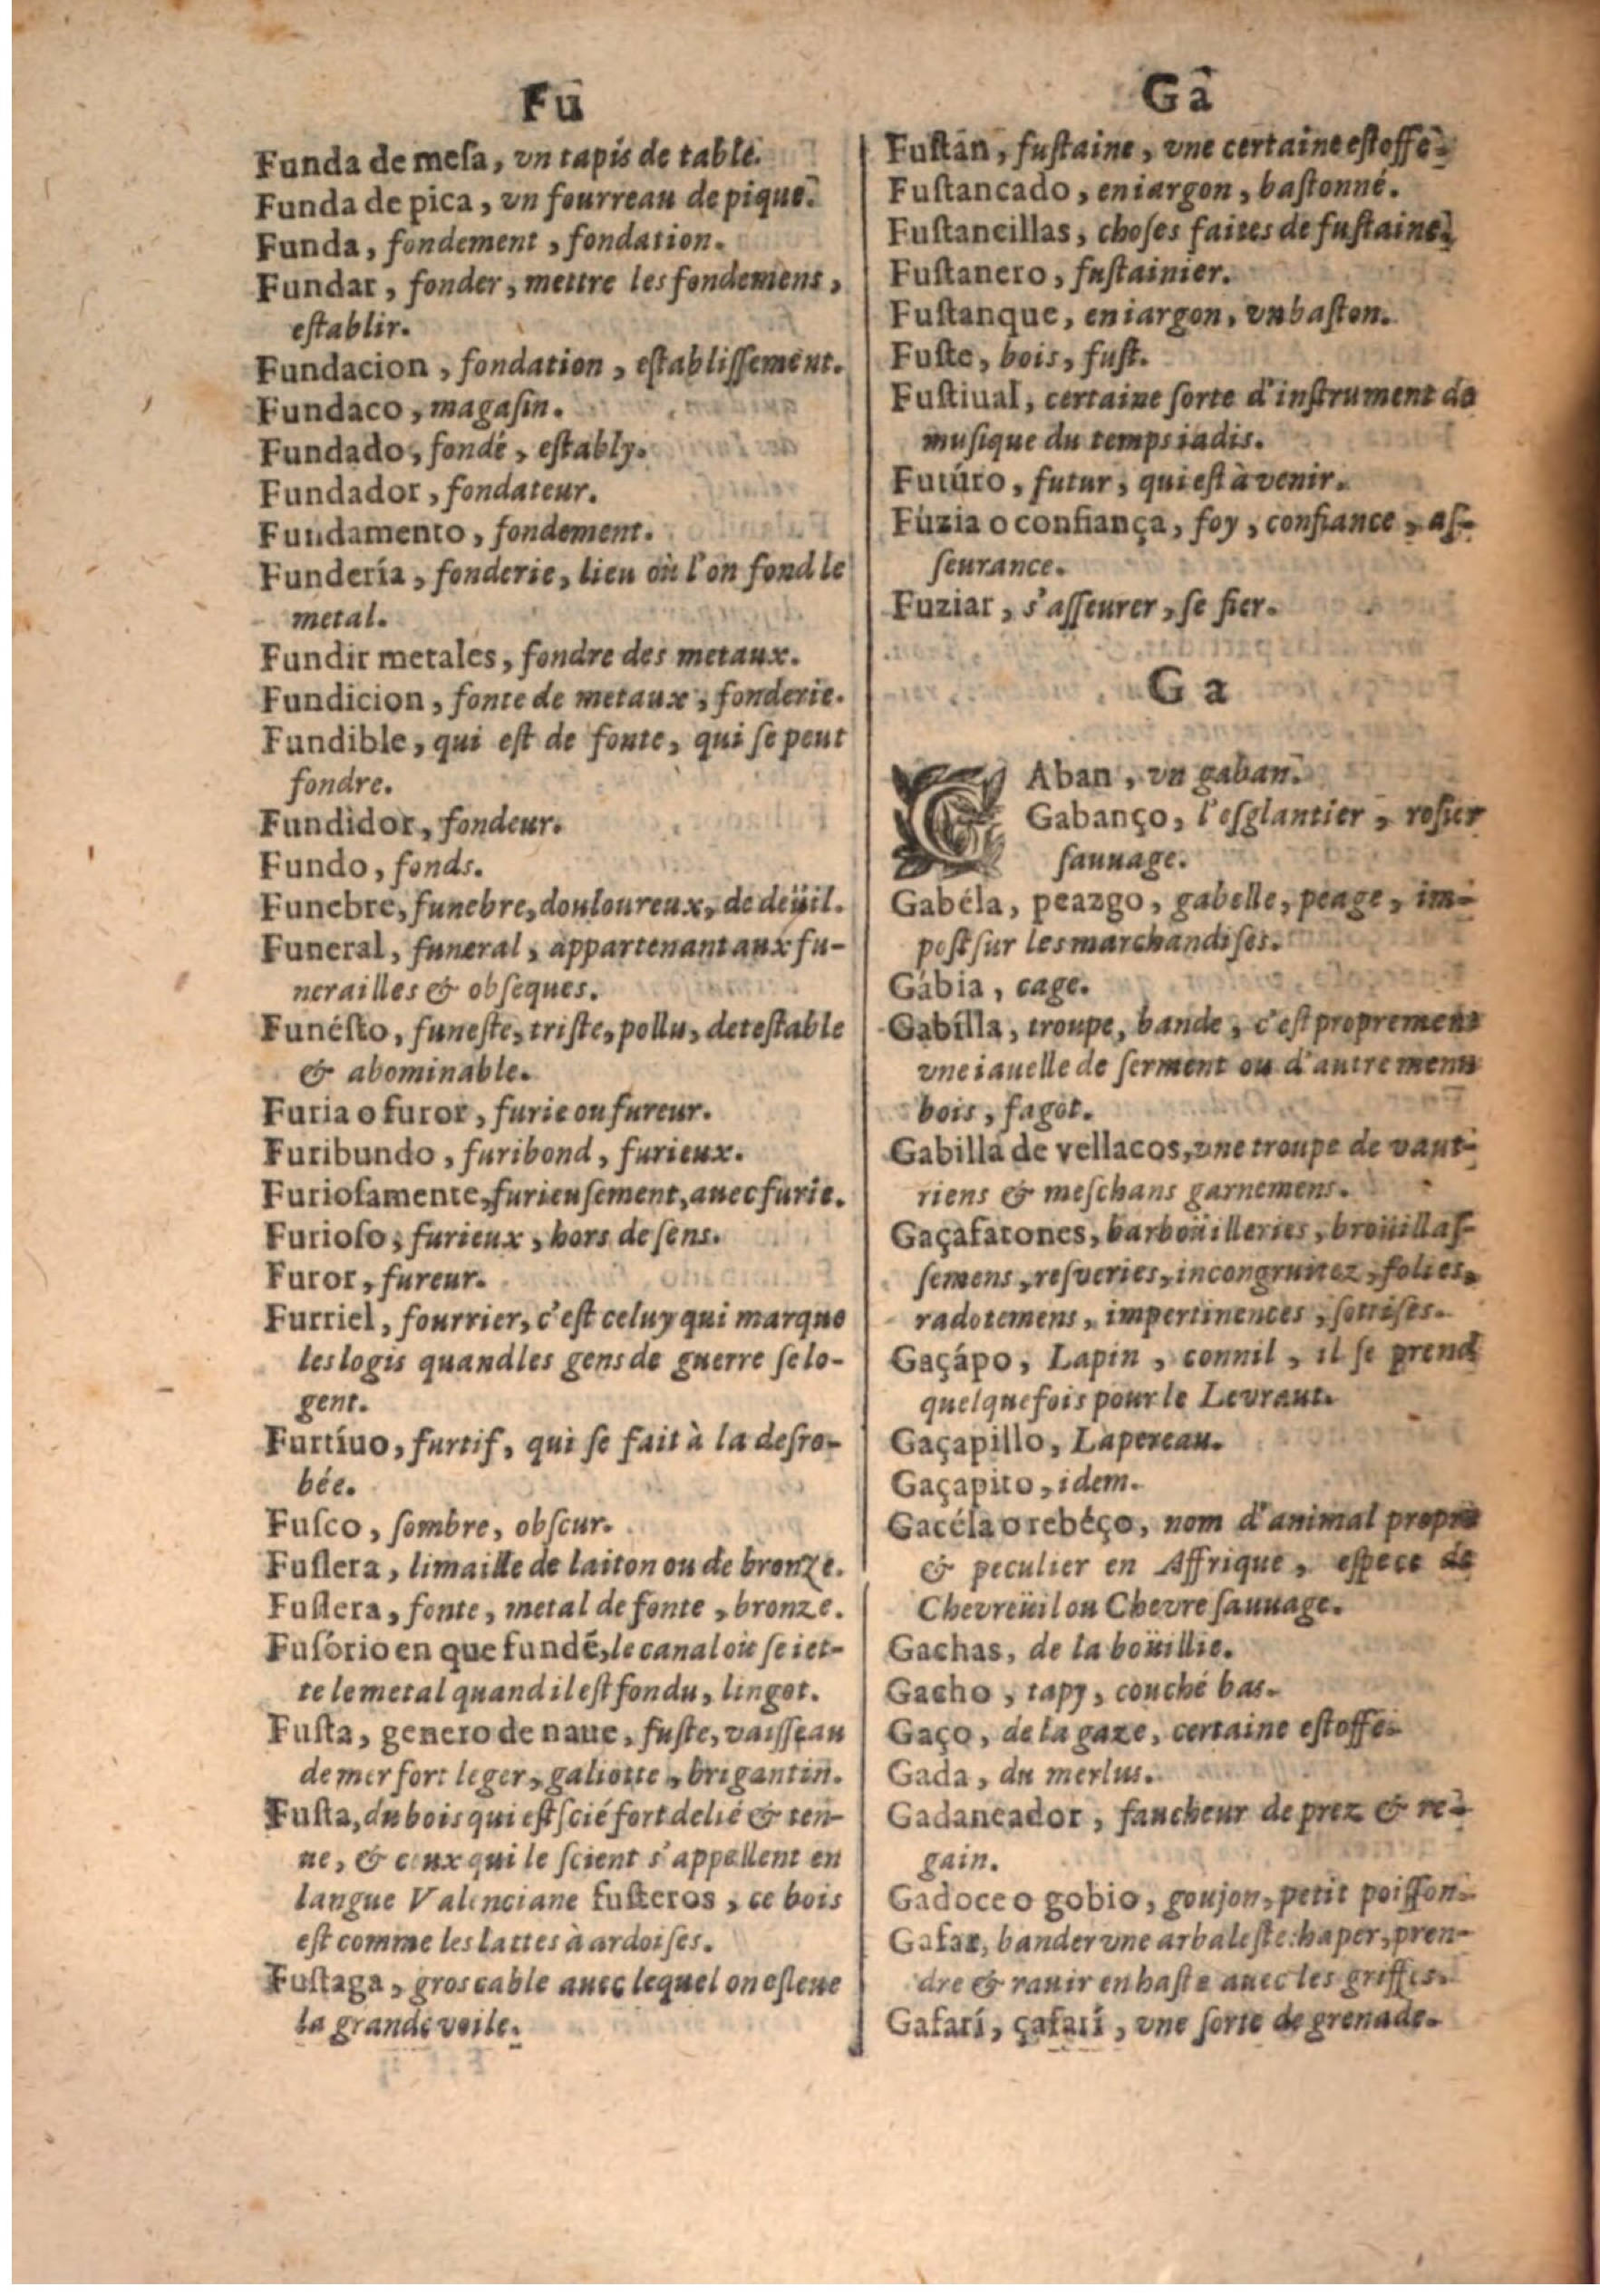 Fu
Funda de meſa, vn tapis de table.
Funda de pica, vn fourreau de pique.
Funda, fondement, fondation.
Fundar, fonder, mettre les fondemens,
eſtablir.
Fundacion, fondation, eſtabliſſement.
Fundaco, magaſin.
Fundado, fondé, eſtably.
Fundador, fondateur.
Fundamento, fondement.
Fundería, fonderie, lieu où l'on fond le
metal.
Fundir metales, fondre des metaux.
Fundicion, fonte de metaux, fonderie.
Fundible, qui eſt de fonte, qui ſe peut
fondre.
Fundidor, fondeur.
Fundo, fonds.
Funebre, funebre, douloureux, de deüil.
Funeral, funeral, appartenant aux fu-
nerailles & obſeques.
Funéſto, funeſte, triſte, pollu, deteſtable
& abominable.
Furia o furor, furie ou fureur.
Furibundo, furibond, furieux.
Furioſamente, furieuſement, auec furie.
Furioſo, furieux, hors de ſens.
Furor, fureur.
Furriel, fourrier, c'eſt celuy qui marque
les logis quand les gens de guerre ſe lo-
gent.
Furtíuo, furtif, qui ſe fait à la deſro-
bée.
Fuſco, ſombre, obſcur.
Fuſlera, limaille de laiton ou de bronze.
Fuſlera, fonte, metal de fonte, bronze.
Fuſório en que fundé, le canal où ſe iet-
te le metal quand il eſt fondu, lingot.
Fuſta, genero de naue, fuſte, vaiſſeau
de mer fort leger, galiotte, brigantin.
Fuſta, du bois qui eſt ſcié fort delié & ten-
ne, & ceux qui le ſcient s'appellent en
langue Valenciane fuſteros, ce bois
eſt comme les lattes à ardoiſes.
Fuſtaga, gros cable auec lequel on eſleue
la grande voile.
Ga
Fuſtán, fuſtaine, vne certaine eſtoffe.
Fuſtancado, en iargon, baſtonné.
Fuſtancillas, choſes faites de fuſtaine.
Fuſtanero, fuſtainier.
Fuſtanque, en iargon, vn baſton.
Fuſte, bois, fuſt.
Fuſtiual, certaine ſorte d'inſtrument de
muſique du temps iadis.
Futúro, futur, qui eſt à venir.
Fúzia o confiança, foy, confiance, aſ-
ſeurance.
Fuziar, s'aſſeurer, ſe fier.
Ga
GAban, vn gaban.
Gabanço, l'eſglantier, roſier
ſauuage.
Gabéla, peazgo, gabelle, peage, im-
poſt ſur les marchandiſes.
Gábia, cage.
Gabílla, troupe, bande, c'eſt proprement
vne iauelle de ſerment ou d'autre menu
bois, fagot.
Gabilla de vellacos, vne troupe de vaut-
riens & meſchans garnemens.
Gaçafatones, barboüilleries, broüillaſ-
ſemens, reſveries, incongruitez, folies,
radotemens, impertinences, ſottiſes.
Gaçápo, Lapin, connil, il ſe prend
quelquefois pour le Levraut.
Gaçapillo, Lapereau.
Gaçapito, idem.
Gacéla o rebéço, nom d'animal propre
& peculier en Affrique, eſpece de
Chevreüil ou Chevre ſauuage.
Gachas, de la boüillie.
Gacho, tapy, couché bas.
Gaço, de la gaze, certaine eſtoffe.
Gada, du merlus.
Gadaneador, faucheur de prez & re-
gain.
Gadoce o gobio, goujon, petit poiſſon.
Gafar, bander vne arbaleſte: haper, pren-
dre & rauir en haſte auec les griffes.
Gafarí, çafarí, vne ſorte de grenade.